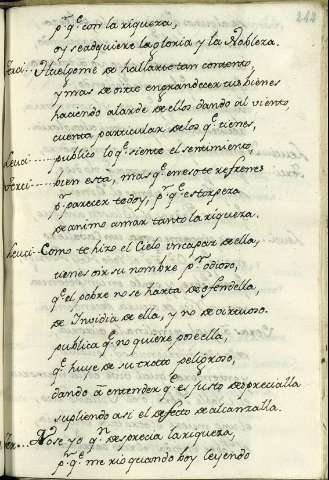 242
p.r q.e con la riqueza,
oy se adquiere la gloria y la Nobleza.
Leuci... Huelgome de hallarte tan contento,
y mas de oirte engrandecer tus bienes
haciendo alarde de ellos dando al viento,
cuenta particular de los q.e tienes,
Leuci...... publico lo q.e siente el sentimiento,
Terci..... bien esta, mas q.e en eso te refrenes
p.r parecer todoy, p.r q.e es torpeza
de animo amar tanto la riqueza.
Leuci- Como te hizo el Cielo incapaz de ella,
tienes oir su nombre p.r odioso,
q.e el pobre no se harta de ofendella,
de Invidia de ella, y no de virtuoso.
publica q.e no quiere poseella,
q.e huye de su tratto peligroso,
dando â entender q.e es justo desprecialla
supliendo asi el defecto de alcanzalla.
Ter... No se yo q.n desprecia la riqueza,
p.r q.e me rio quando hoy leyendo